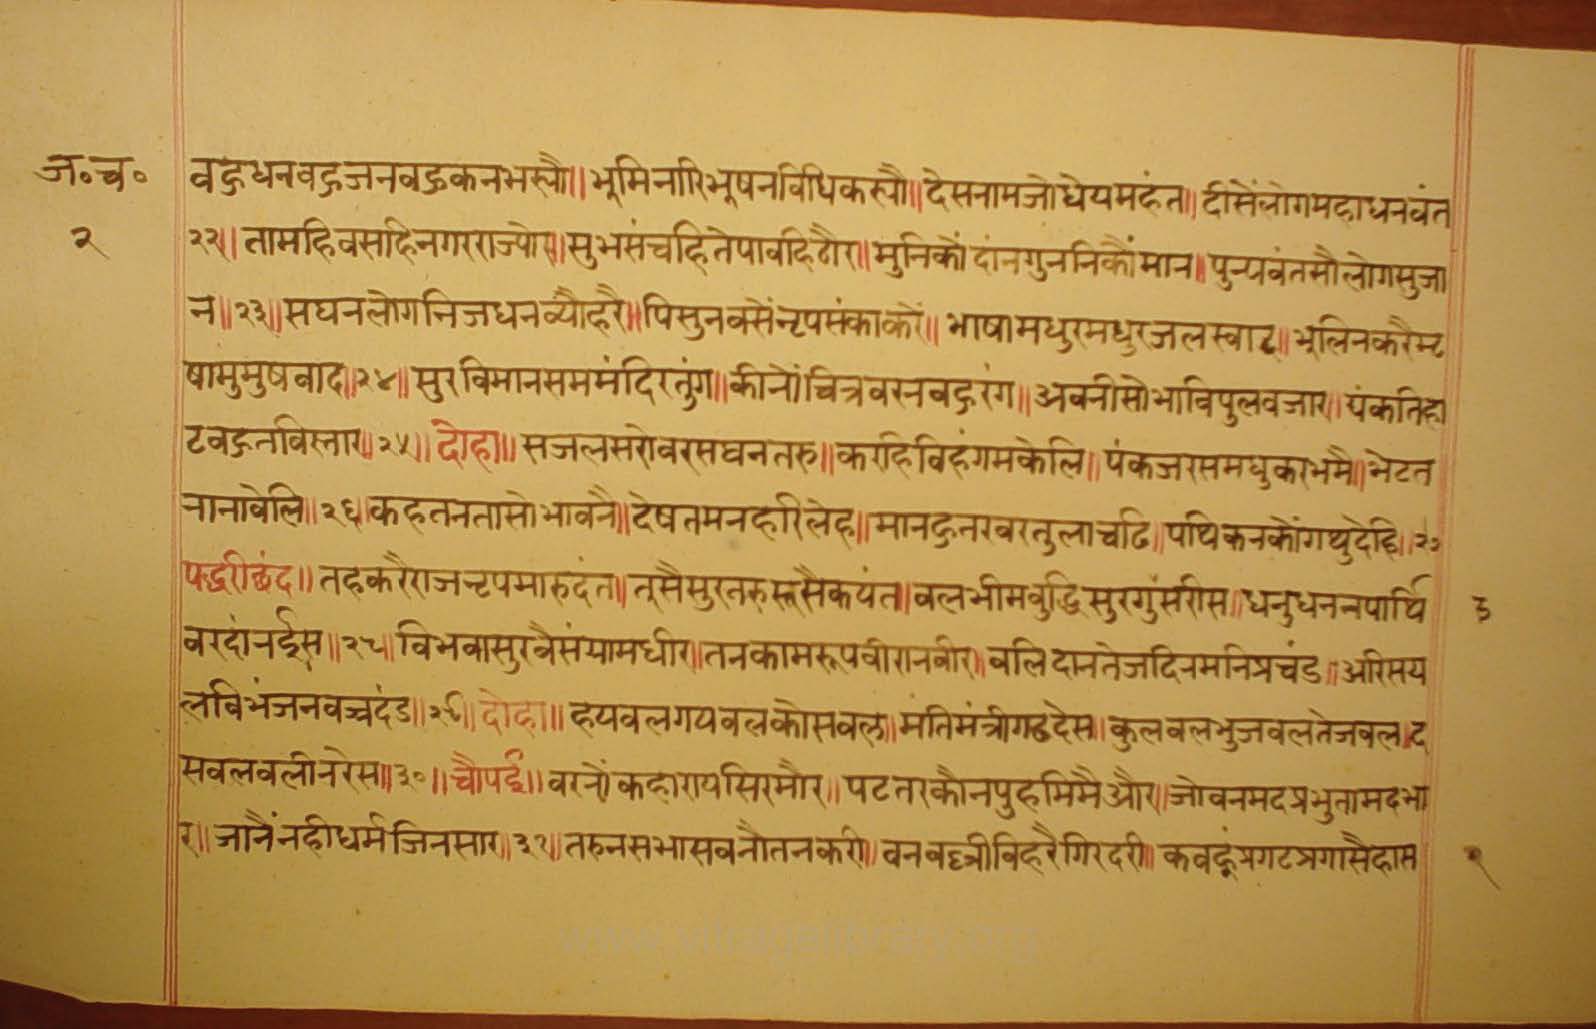 ज॰च॰
२
वहुधनवहुजनवहुकनभस्यौ॥भूमिनारिभूषनविधिकस्यौ॥देसनामजोधेयमहंत॥दीसेंलोगमहाधनवंत
२२॥तामहिवसहिनगरराजपोर॥सुभसंचहितेपावहिठौर॥मुनिकौंदांनगुननिकौंमान॥पुन्यवंतसौलोगसुजा
न॥२३॥सघनलोगनिजधनव्यौहरै॥पिसुनवसेंनृपसंकाकरें॥भाषामधुरमधुरजलस्वाद॥भूलिनकरैम्ट
षामुमुषवाद॥२४॥सुरविमानसममंदिरतुंग॥कीनोंचित्रवरनवहुरंग॥अवनीसोभाविपुलवजार॥पंकतिहा
टवहुतविस्तार॥२५॥दोहा॥सजलसरोवरसघनतरु॥करहिविहंगमकेलि॥पंकजरसमधुकरभमै॥भेटत
नानावेलि॥२६॥कहतनतासोभावनै॥देषतमनहरिलेह॥मानहुनरवरतुलाचढि॥पथिकनकोंगथुदेहि॥२७
पद्धरीछंद॥तहकरैराजनृपमारुदंत॥तूसैसुरतरुरूसैकयंत॥वलभीमवुद्धिसुरगुंसरीस॥धनुधननपार्थि
वरदांनईस॥२८॥विभवासुरवैसंयामधीर॥तनकामरूपवीरानवीर॥वलिदानतेजदिनमनिप्रचंड॥अरिसय
लविभंजनवज्रदंड॥२९॥दोहा॥हयवलगयवलकोसवल॥मंतिमंत्रीगढदेस॥कुलवलभुजवलतेजवल॥द
सवलवलीनरेस॥३०॥चौपई॥वरनोंकहारायसिरमौर॥पटतरकौनपुहमिमैऔर॥जोवनमदप्रभुतामदभा
र॥जानैंनहीधर्मजिनसार॥३१॥तरुनसभासवनौतनकरी॥वनवहत्रीविहरैगिरदरी॥कवहूंप्रगटप्रगासैहास
३